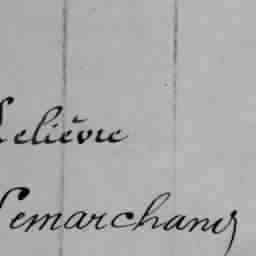 Lelièvre
Lemarchand